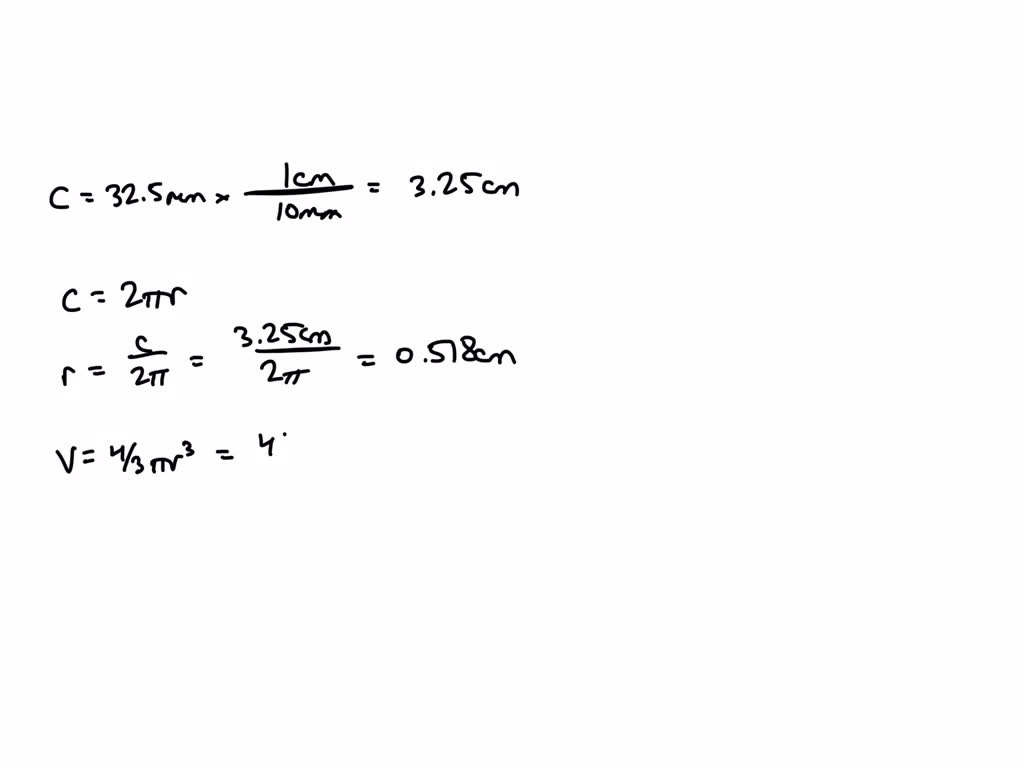 C = 32.5mm × 1cm/10mm = 3.25cm
C = 2πr
r = C/2π = 3.25cm/2π = 0.518cm
V = 4/3 πr³ = 4